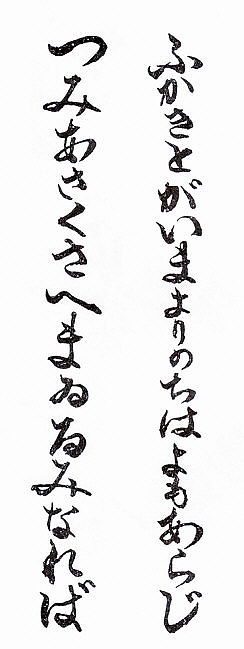 ふかきとがいまよりのちはよもあらじ
つみあさくさへまゐるみなれば